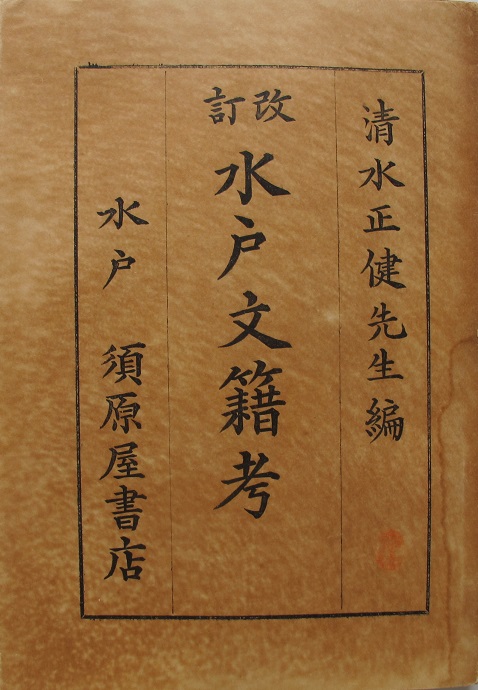 清水正健先生編
改訂
水戸文籍考
水戸 須原屋書店